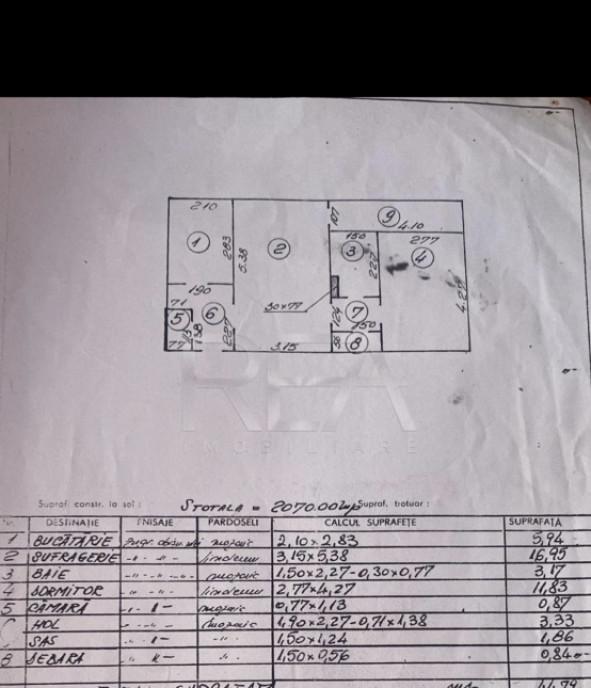 210
1
283
2
5.38
107
9
4.10
150
3
227
277
4
4.27
190
71
5
6
138
227
77
30x77
124
7
150
56
8
3.15
REA
IMOBILIARE
Supraf. constr. la sol : STOTALA = 2070.00mp Supraf. trotuar :
Nr. DESTINAȚIE FINISAJE PARDOSELI CALCUL SUPRAFEȚE SUPRAFAȚA
1 BUCĂTĂRIE mozaic 2,10x2,83 5,94
2 SUFRAGERIE -"- linoleum 3,15x5,38 16,95
3 BAIE -"- mozaic 1,50x2,27-0,30x0,77 3,17
4 DORMITOR -"- linoleum 2,77x4,27 11,83
5 CĂMARĂ -"- mozaic 0,77x1,13 0,87
HOL -"- mozaic 1,90x2,27-0,71x1,38 3,33
SAS -"- -"- 1,50x1,24 1,86
8 DEBARA -"- -"- 1,50x0,56 0,84
44,79